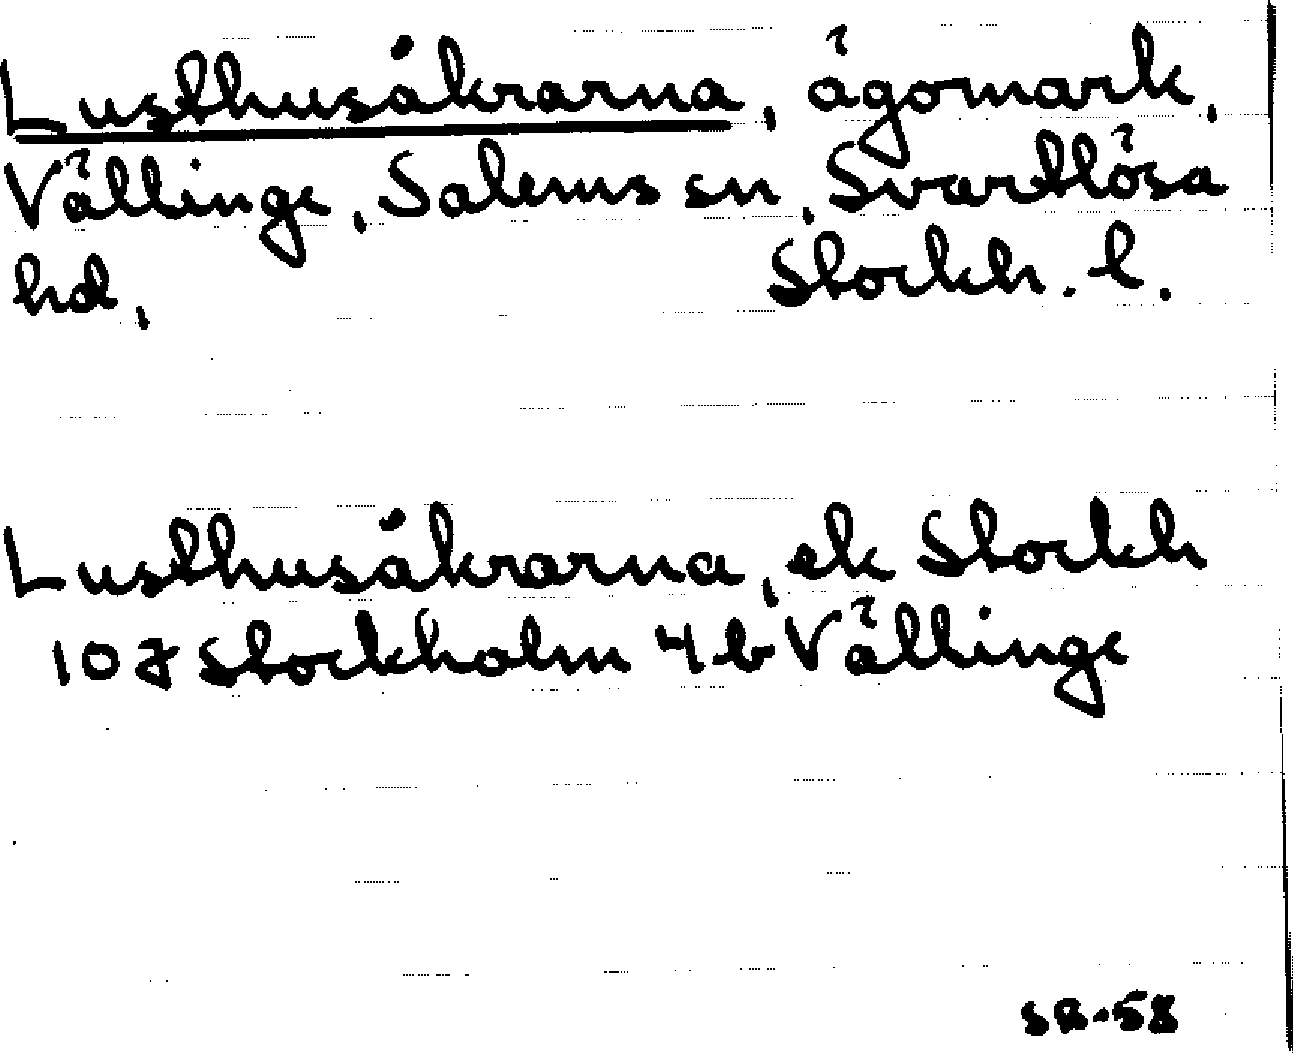 Lusthusåkrarna, ägomark,
Vällinge, Salems sn, Svartlösa
hd, Stockh. l.
Lusthusåkrarna, ek Stockh
10J Stockholm 4b Vällinge
SR-58